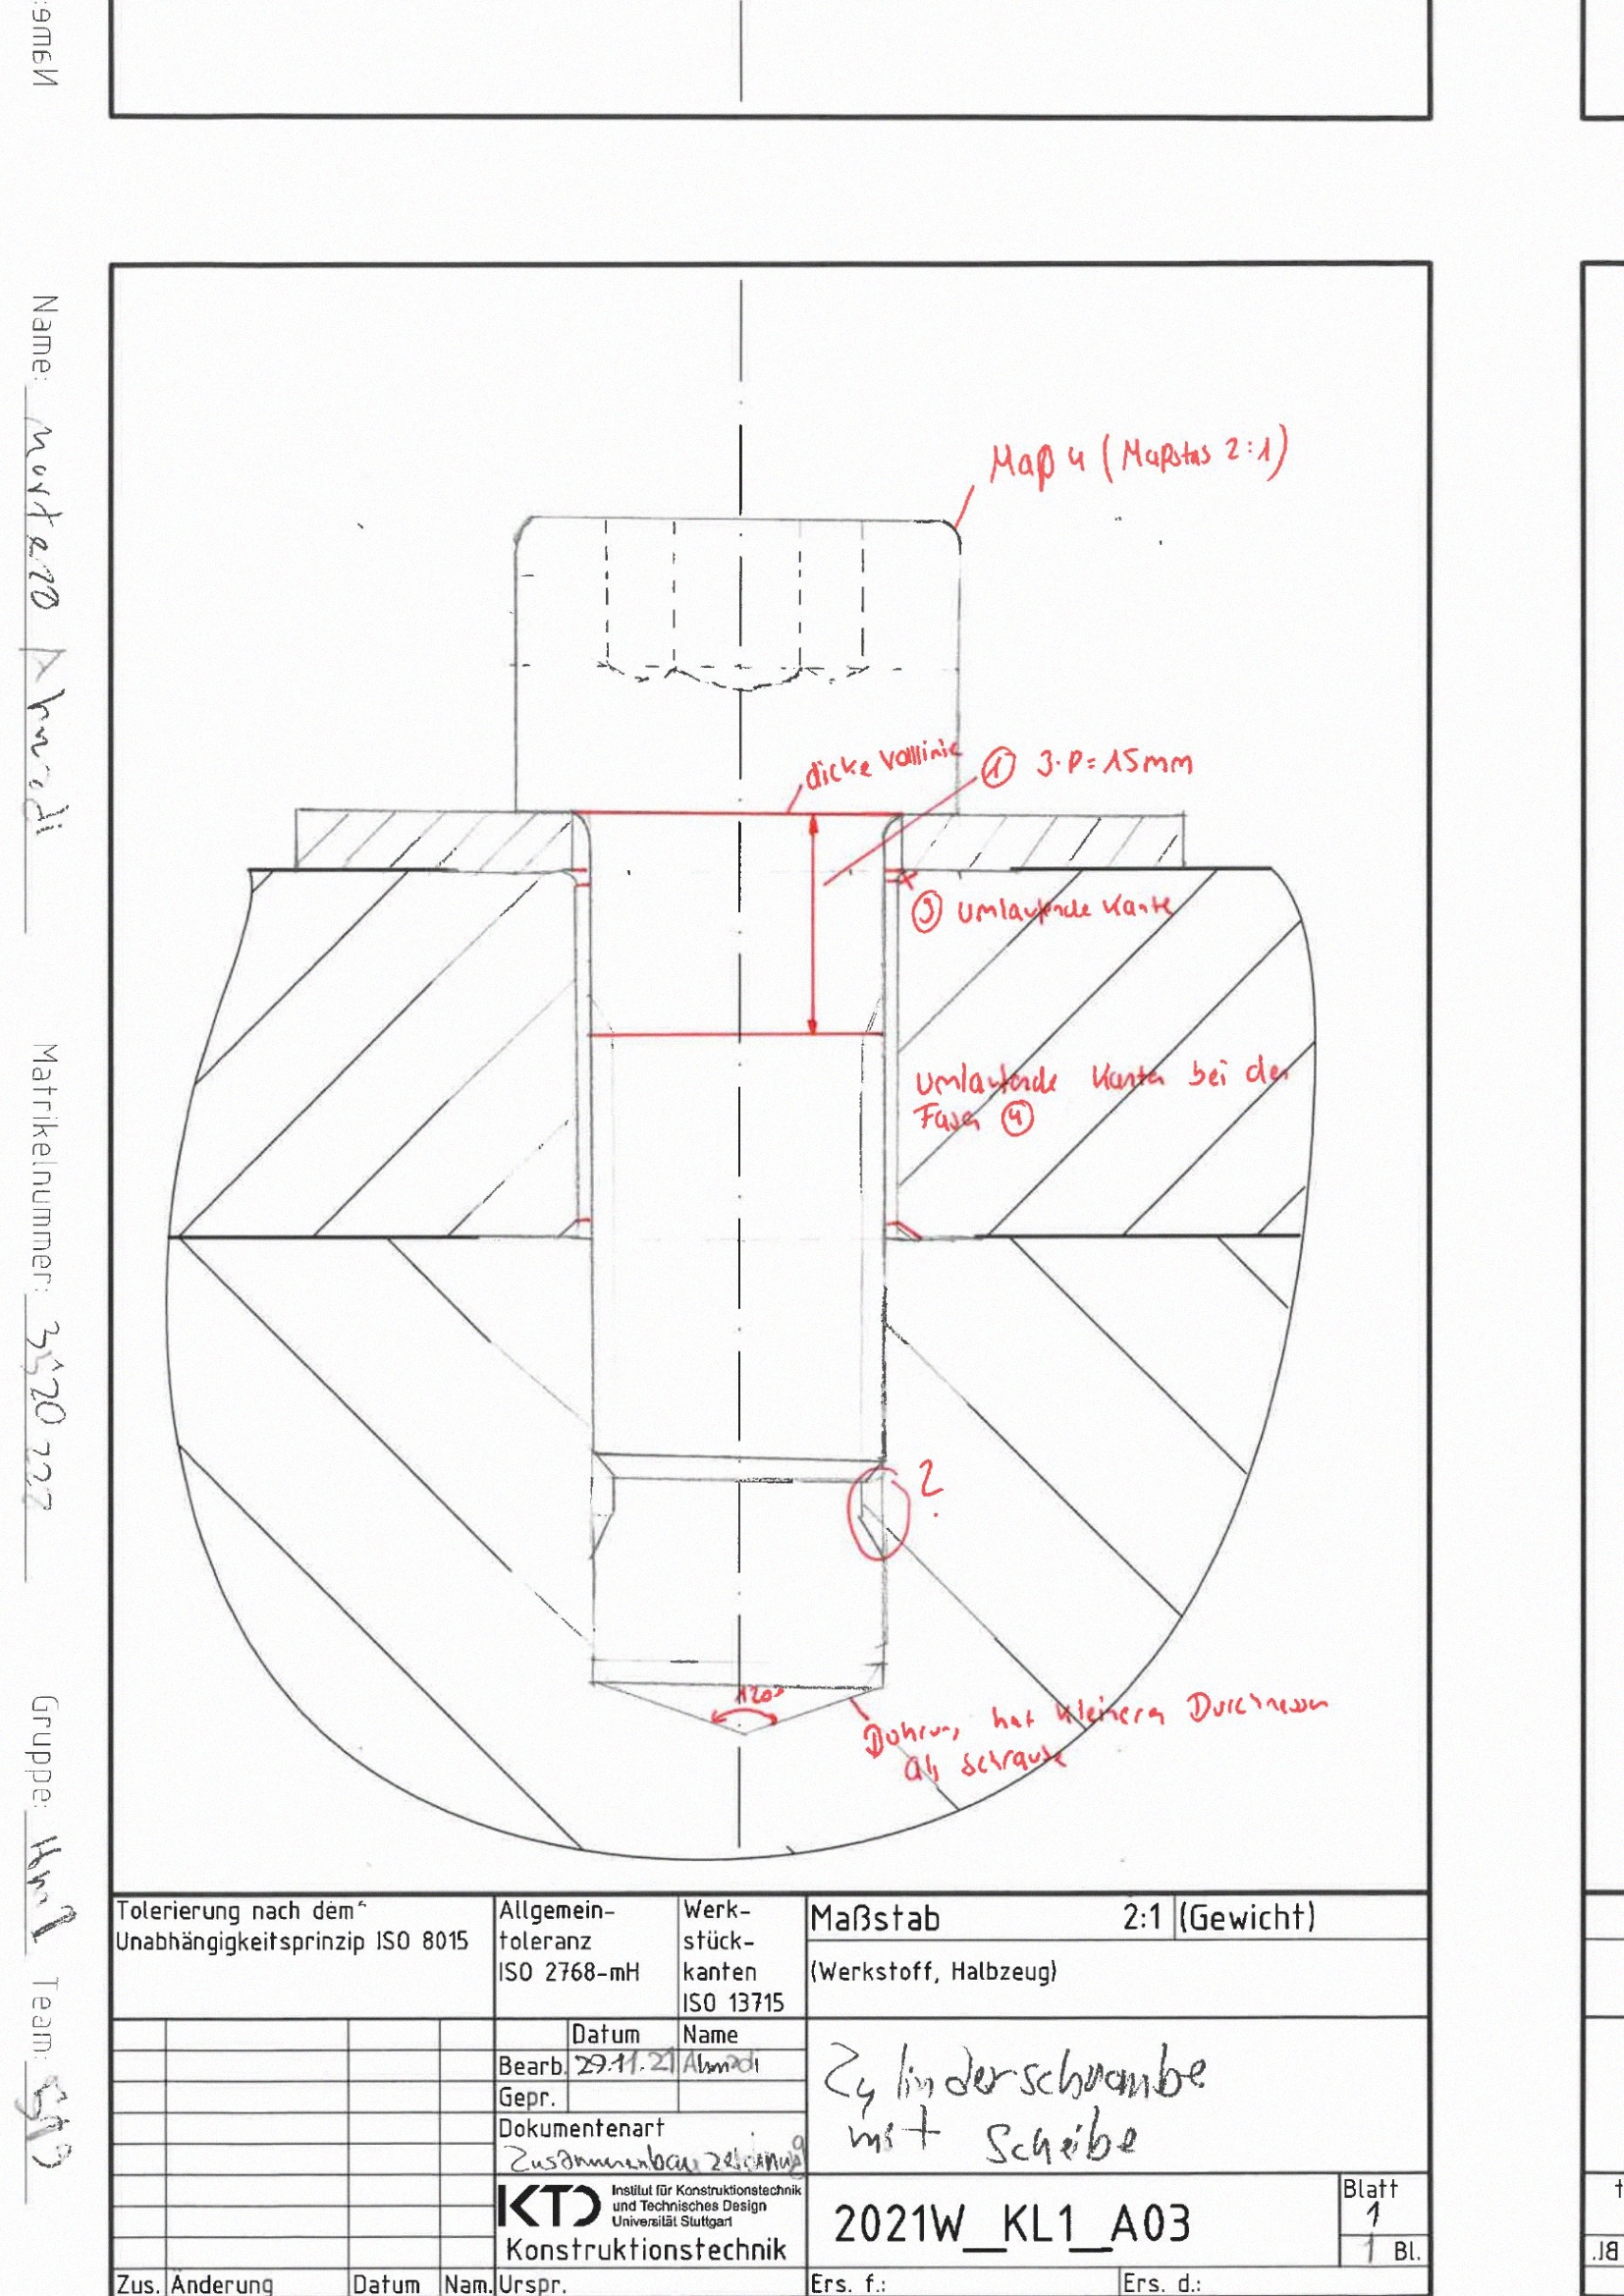 Name:
Name:
Matrikelnummer:
Gruppe:
Team:
Maß 4 (Maßstab 2:1)
dicke Vollinie
① 3·P=15mm
③ umlaufende Kante
umlaufende Kanten bei den
Fasen ④
?
120°
hat kleineren
als Schraube
Tolerierung nach dem
Unabhängigkeitsprinzip ISO 8015
Allgemein-
toleranz
ISO 2768-mH
Werk-
stück-
kanten
ISO 13715
Maßstab 2:1 (Gewicht)
(Werkstoff, Halbzeug)
Datum Name
Bearb. 29.11.21 Ahmadi
Gepr.
Dokumentenart
Zusammenbauzeichnung
Zylinderschraube
mit Scheibe
KTD
Institut für Konstruktionstechnik
und Technisches Design
Universität Stuttgart
Konstruktionstechnik
2021W_KL1_A03
Blatt
1
1 Bl.
Zus. Änderung Datum Nam. Urspr. Ers. f.: Ers. d.: